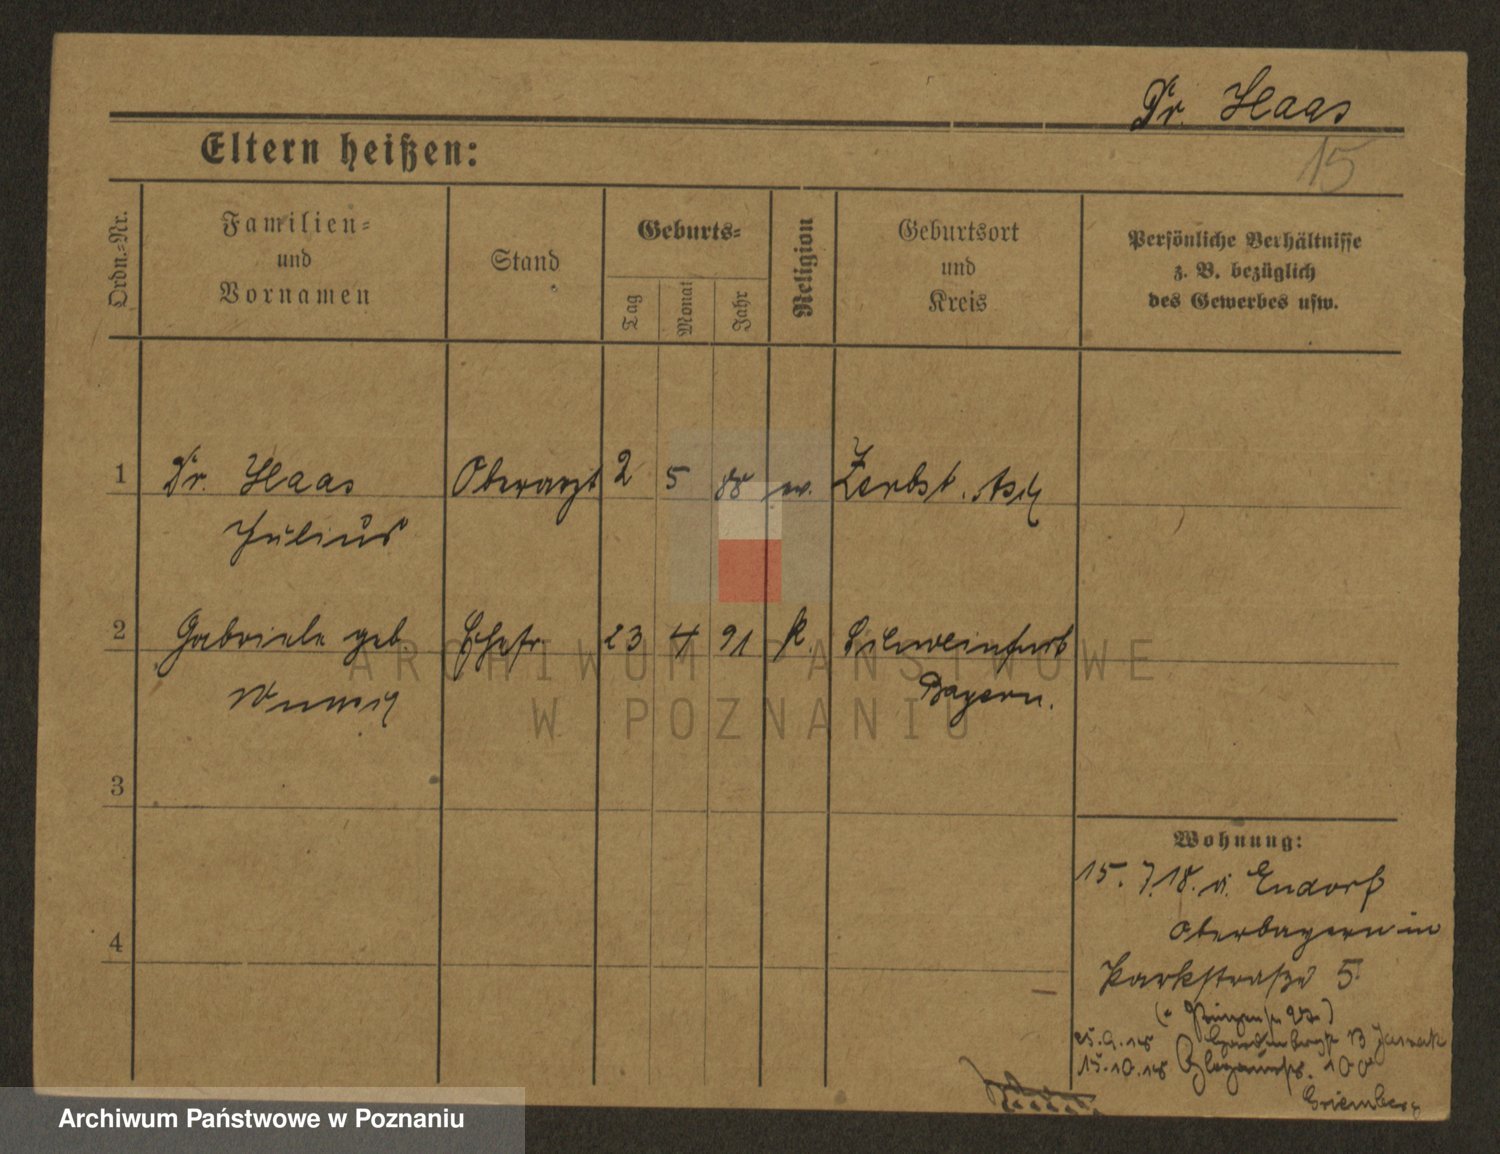 Dr. Haas
15
Eltern heißen:
Ordn.-Nr.
Familien-
und
Vornamen
Stand
Geburts-
Tag
Monat
Jahr
Religion
Geburtsort
und
Kreis
Persönliche Verhältnisse
z. B. bezüglich
des Gewerbes usw.
1 Dr. Haas Oberarzt 2 5 88 ev. Zerbst.
Julius
2 Gabriele geb. Ehefr. 23 4 91 k. Schweinfurt
Bayern.
3
4
Wohnung:
15. 7.18. v. Endorf
Oberbayern in
Parkstraße 5
25.9.18
15.10.18 Glogauerstr. 100
ARCHIWUM PAŃSTWOWE
W POZNANIU
Archiwum Państwowe w Poznaniu